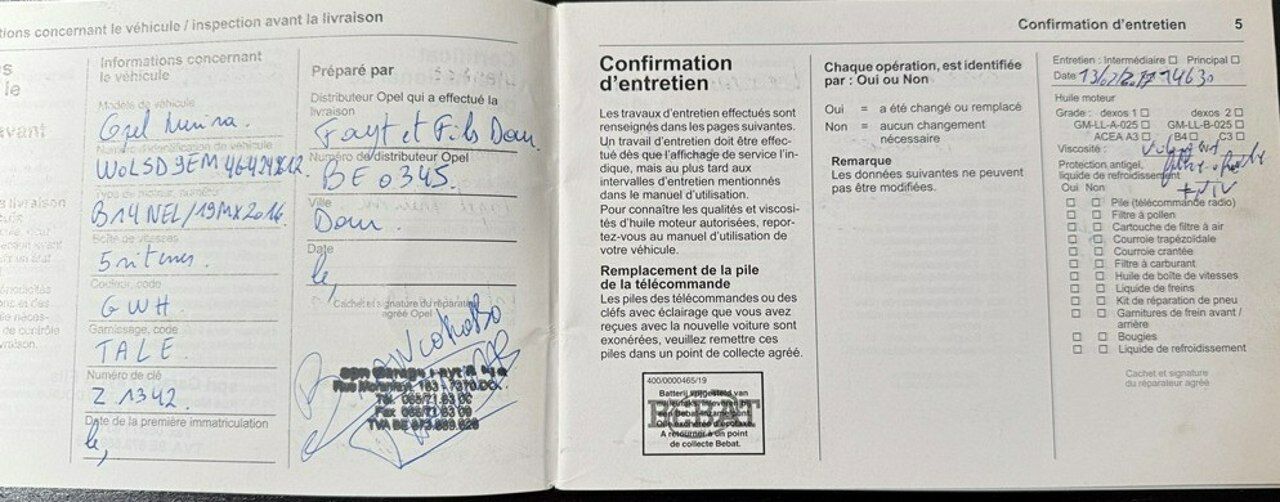 tions concernant le véhicule / inspection avant la livraison
Informations concernant
le véhicule
Modèle de véhicule
Opel Meriva.
Numéro d'identification de véhicule
Type de moteur, numéro
B14NEL/19MX2016
Boîte de vitesses
5 vitesses.
Couleur, code
GWH
Garnissage, code
TALE
Numéro de clé
Z 1342.
Date de la première immatriculation
le,
Préparé par
Distributeur Opel qui a effectué la
livraison
Fayt et Fils Dour.
Numéro de distributeur Opel
BE 0345.
Ville
Dour.
Date
le,
Cachet et signature du réparateur
agréé Opel
Confirmation d'entretien 5
Confirmation
d'entretien
Les travaux d'entretien effectués sont
renseignés dans les pages suivantes.
Un travail d'entretien doit être effec-
tué dès que l'affichage de service l'in-
dique, mais au plus tard aux
intervalles d'entretien mentionnés
dans le manuel d'utilisation.
Pour connaître les qualités et viscosi-
tés d'huile moteur autorisées, repor-
tez-vous au manuel d'utilisation de
votre véhicule.
Remplacement de la pile
de la télécommande
Les piles des télécommandes ou des
clefs avec éclairage que vous avez
reçues avec la nouvelle voiture sont
exonérées, veuillez remettre ces
piles dans un point de collecte agréé.
400/0000465/19
BEBAT
A retourner à un point
de collecte Bebat.
Chaque opération, est identifiée
par : Oui ou Non
Oui = a été changé ou remplacé
Non = aucun changement
nécessaire
Remarque
Les données suivantes ne peuvent
pas être modifiées.
Entretien : Intermédiaire ☐ Principal ☐
Date 13/07/2017 14630
Huile moteur
Grade : dexos 1 ☐ dexos 2 ☐
GM-LL-A-025 ☐ GM-LL-B-025 ☐
ACEA A3 ☐ B4 ☐ C3 ☐
Viscosité :
Protection antigel,
liquide de refroidissement
Oui Non
☐ ☐ Pile (télécommande radio)
☐ ☐ Filtre à pollen
☐ ☐ Cartouche de filtre à air
☐ ☐ Courroie trapézoïdale
☐ ☐ Courroie crantée
☐ ☐ Filtre à carburant
☐ ☐ Huile de boîte de vitesses
☐ ☐ Liquide de freins
☐ ☐ Kit de réparation de pneu
☐ ☐ Garnitures de frein avant /
arrière
☐ ☐ Bougies
☐ ☐ Liquide de refroidissement
Cachet et signature
du réparateur agréé